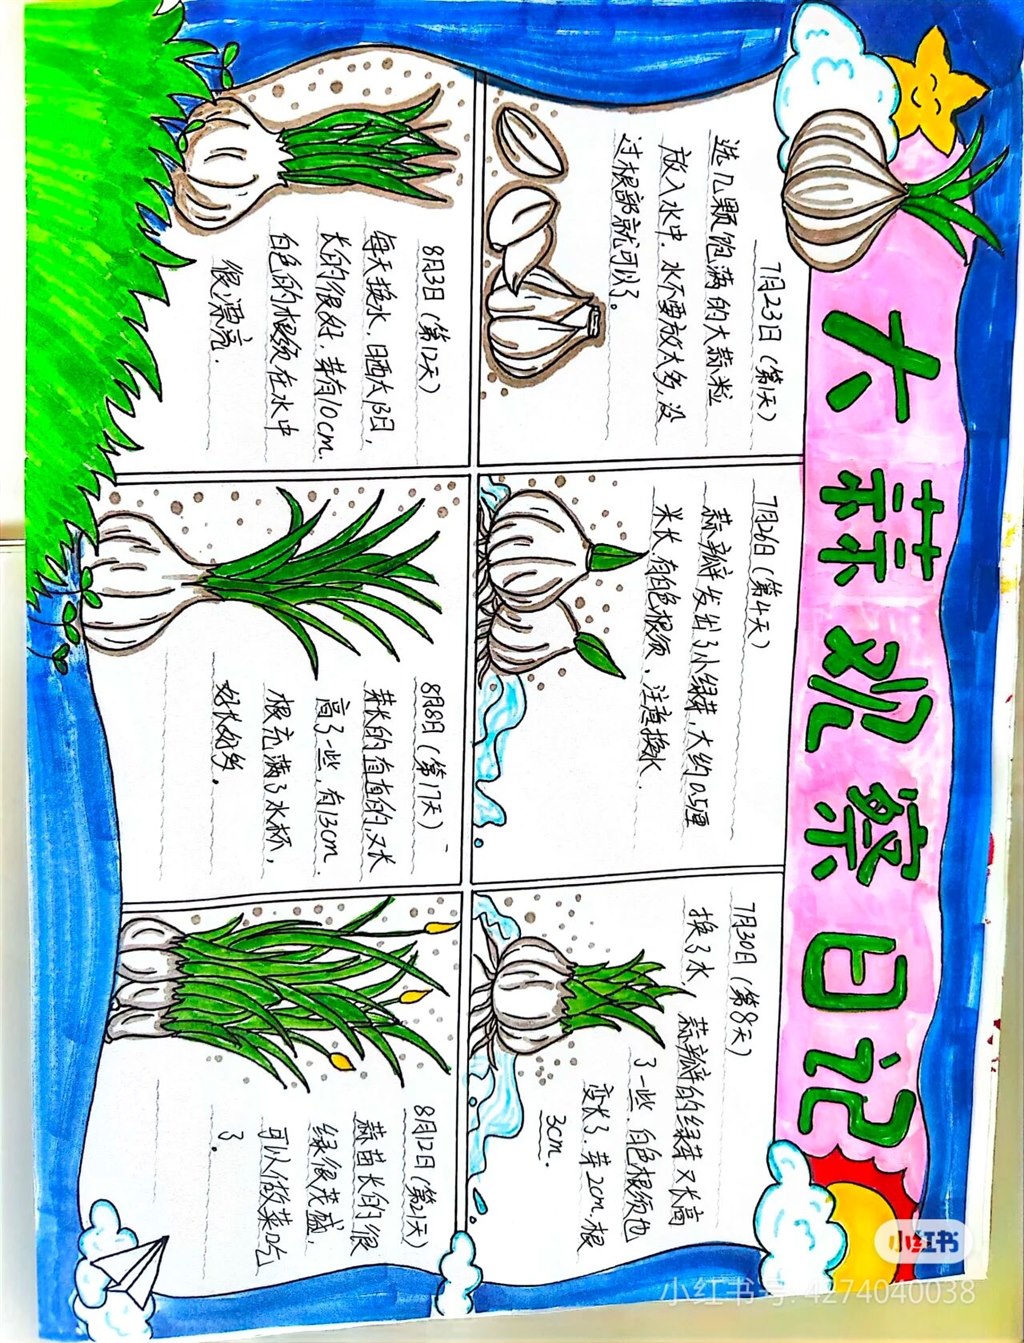 大蒜观察日记
7月23日(第1天)
选几颗饱满的大蒜粒
放入水中.水不要放太多,没
过根部就可以了。
7月26日(第4天)
蒜瓣发出了小绿芽,大约0.5厘
米长,有白色根须、注意换水.
7月30日(第8天)
换了水,蒜瓣的绿芽又长高
了一些 白色根须也
变长了.芽2cm.根
3cm.
8月3日(第12天)
每天换水,晒太阳,
长的很好,芽有10cm.
白色的根须在水中
很漂亮.
8月8日(第17天)
芽长的直直的又长
高了一些,有13cm.
根充满了水杯,
好长好多.
8月12日(第21天)
蒜苗长的很
绿很茂盛,
可以做菜吃
了.
小红书
小红书号: 4274040038